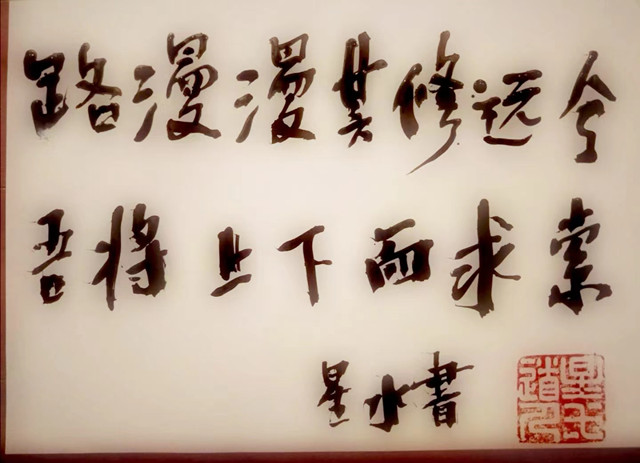 路漫漫其修远兮
吾将上下而求索
星水書